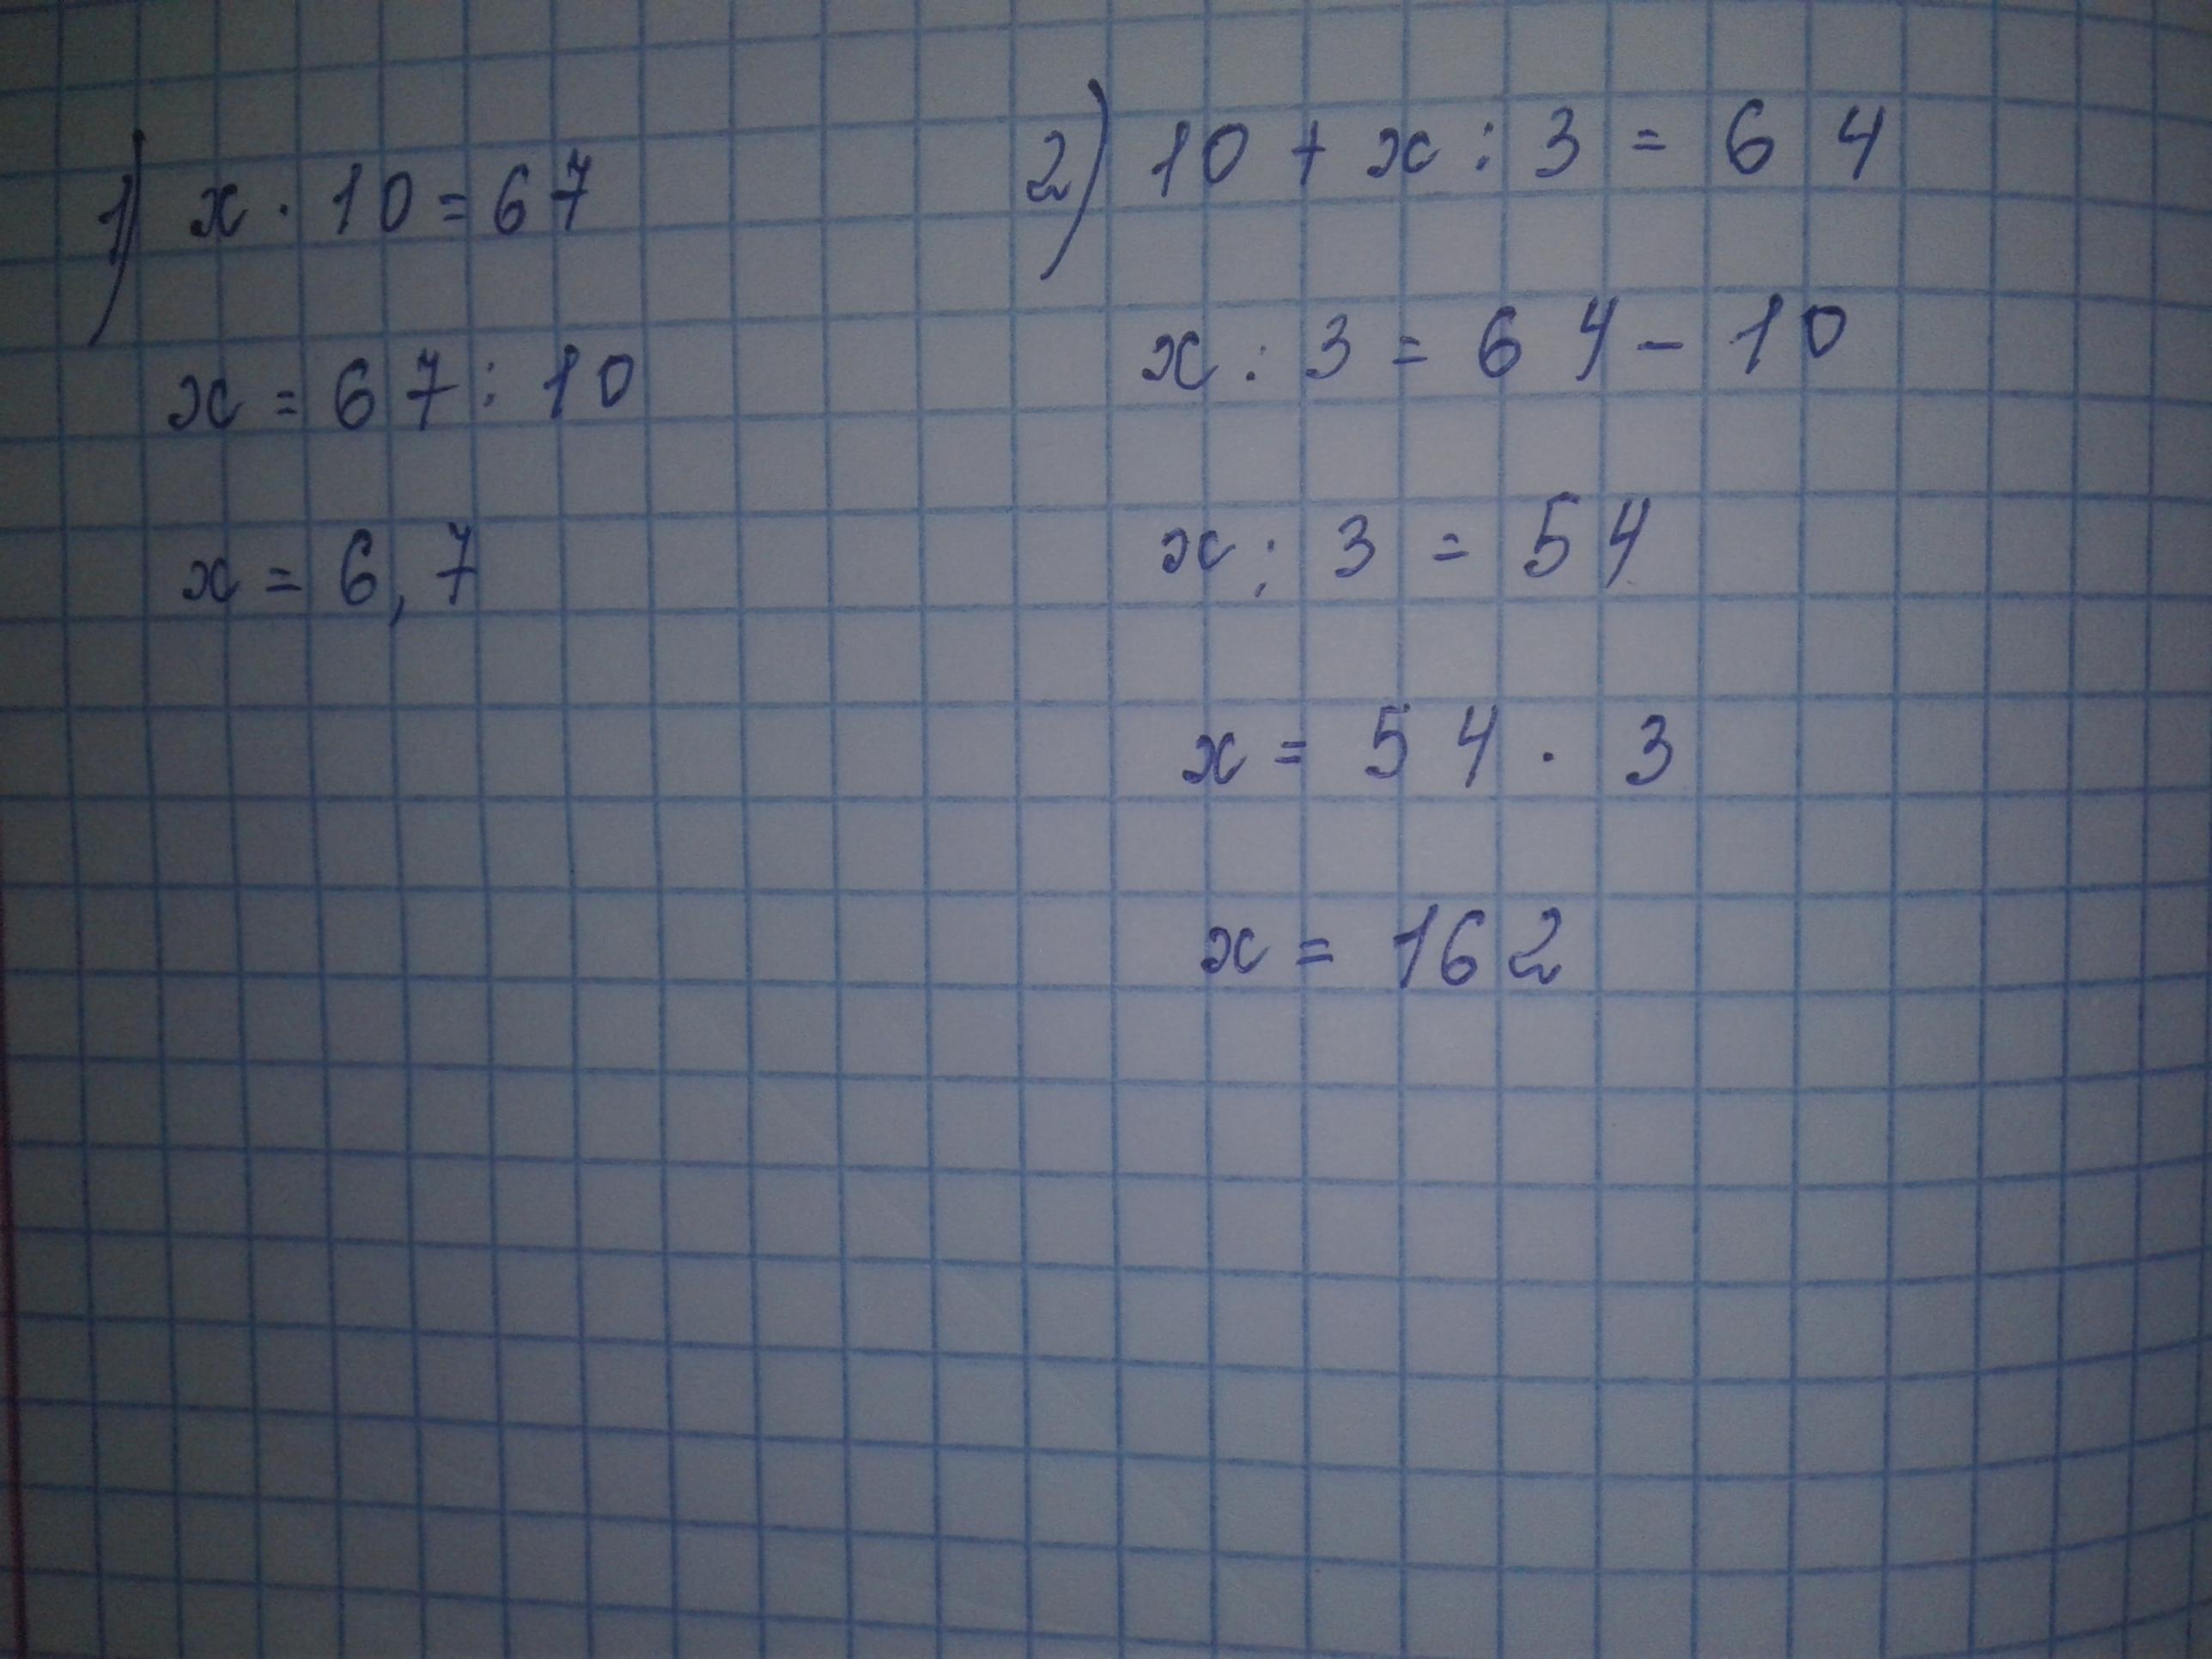 1) x · 10 = 67
x = 67 : 10
x = 6,7
2) 10 + x : 3 = 64
x : 3 = 64 - 10
x : 3 = 54
x = 54 · 3
x = 162